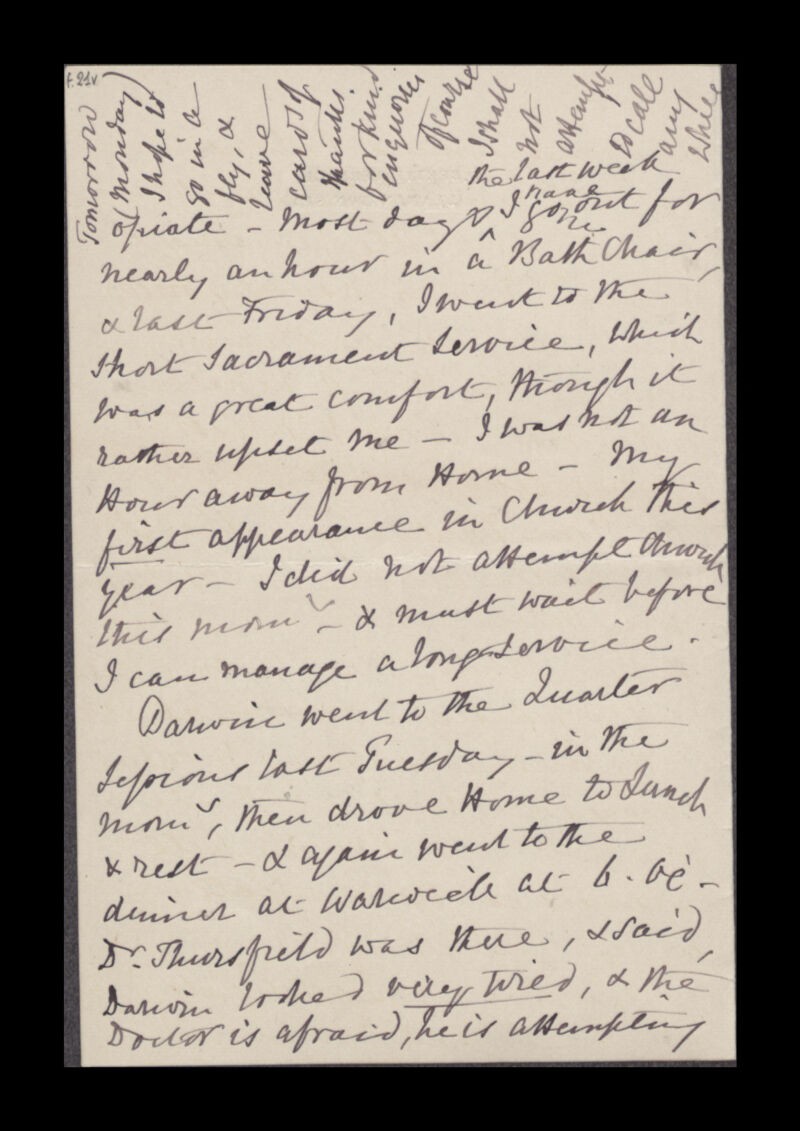 f. 21v
Tomorrow
(Monday)
I hope to
go in a
fly, &
leave
cards of
thanks
for kind
enquiries
Of course
I shall
not
attempt
to call
any
while
the last week
opiate - Most days I have gone out for
nearly an hour in a Bath Chair,
& last Friday, I went to the
short Sacrament Service, which
was a great comfort, though it
rather upset me - I was not an
Hour away from Home - My
first appearance in Church this
year - I did not attempt Church
this morng - & must wait before
I can manage a long Service.
Darwin went to the Quarter
Sessions last Tuesday - in the
morng, then drove Home to Lunch
& rest - & again went to the
dinner at Warwick at 6. oc -
Dr. Thursfield was there, & said,
Darwin looked very tired, & the
Doctor is afraid, he is attempting